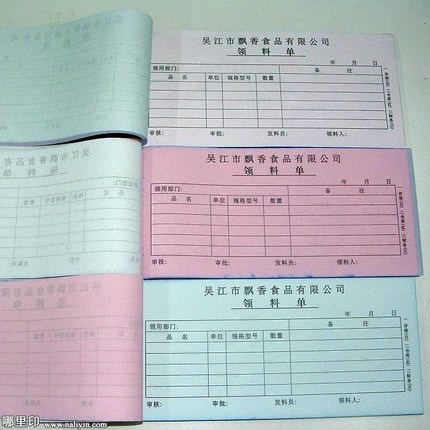 吴江市飘香食品有限公司
领 料 单
年 月 日
领用部门:
备 注
品 名 单位 规格型号 数量
审核: 审批: 发料员: 领料人:
吴江市飘香食品有限公司
领 料 单
年 月 日
领用部门:
备 注
品 名 单位 规格型号 数量
审核: 审批: 发料员: 领料人:
吴江市飘香食品有限公司
领 料 单
年 月 日
领用部门:
备 注
品 名 单位 规格型号 数量
审核: 审批: 发料员: 领料人:
哪里印 www.nahyin.com